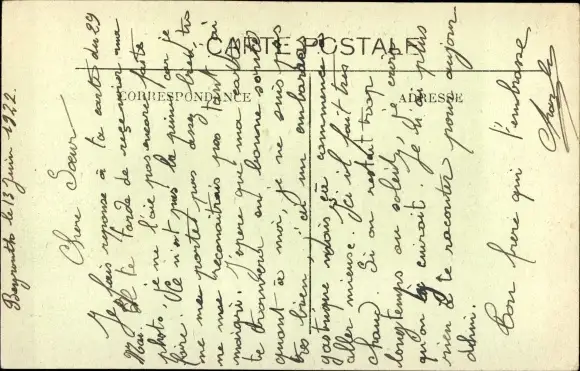 CARTE POSTALE
CORRESPONDANCE
ADRESSE
Beyrouth le 13 Juin 1922
Chere Soeur
Je fais reponse à ta carte du 29
Mai il te tarde de recevoir ma
photo je ne l'aie pas encore faite
faire. Ce n'est pas la peine car je
ne me portes pas assez bien tu
ne me reconaitrais pas tant j'ai
maigri. J'espere que ma carte
te trouvera en bonne santé
quant à moi, je ne suis pas
tres bien, j'ai un embaras
gastrique mais ça commence à
aller mieux. Ici il fait tres
chaud. Si on restait trop
longtemps au soleil, je crois
qu'on cuirait. Je n'ai plus
rien à te raconter pour aujour
dhui.
Ton frere qui t'embrasse
Charles